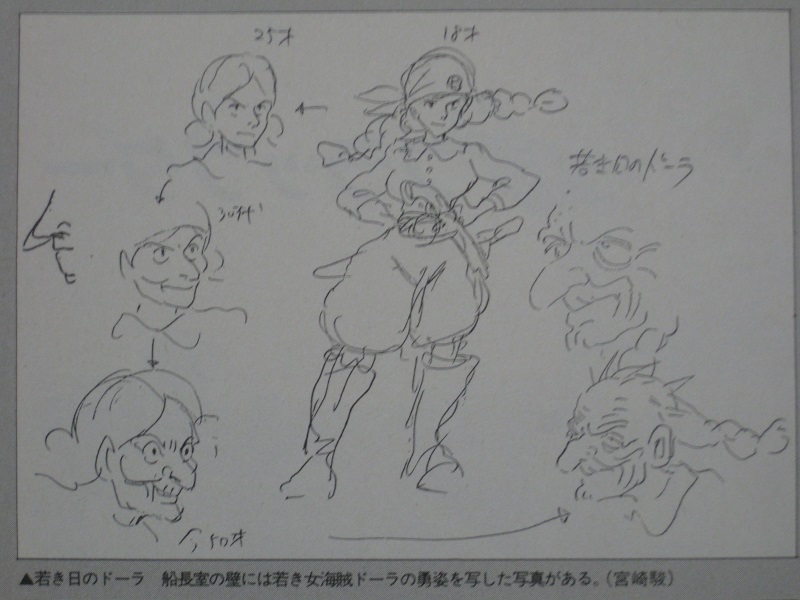 25才
18才
若き日のドーラ
30代
今50才
▲若き日のドーラ 船長室の壁には若き女海賊ドーラの勇姿を写した写真がある。(宮崎駿)